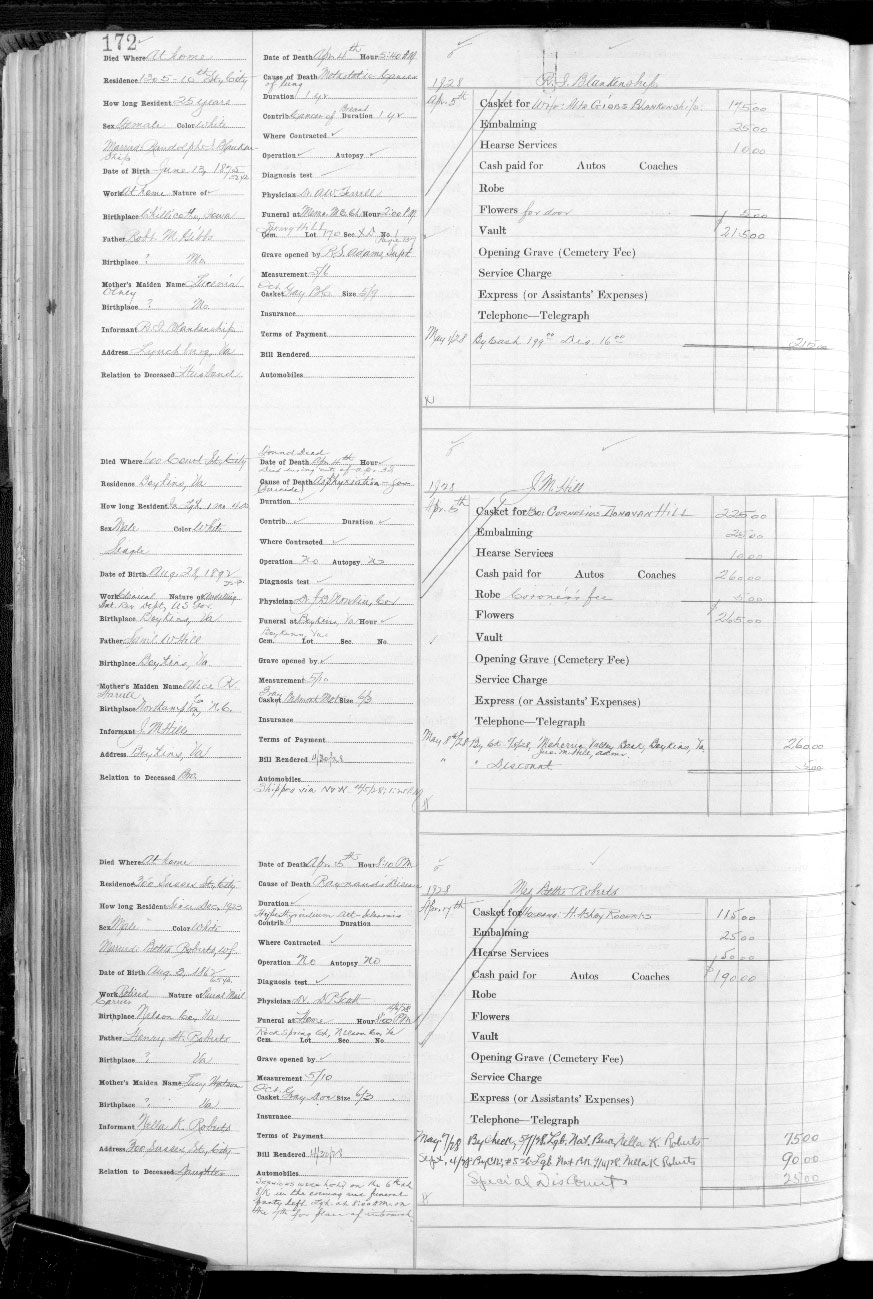 172
Died Where At home
Residence 1305-16th St, City
How long Resident 25 years
Sex Female Color White
Married Randolph J. Blanken-
ship
Date of Birth June 13, 1875
52 yr
Work At home Nature of
Birthplace Chillicothe, Iowa
Father Robt. M. Gibbs
Birthplace ? Mo
Mother's Maiden Name
Olney
Birthplace ? Mo
Informant R. J. Blankenship
Address Lynchburg, Va
Relation to Deceased Husband
Date of Death Apr 4th Hour 5:40 P.M.
Cause of Death Metastatic Cancer
of lung
Duration 1 yr
Contrib. Cancer of Breast Duration 1 yr
Where Contracted
Operation Autopsy
Diagnosis test
Physician Dr. A.W. Terrell
Funeral at Mem. M.E. Ch Hour 2:00 P.M.
Spring Hill
Cem. Lot 170 Sec. No. 1
Grave opened by R.S. Adams, Supt
Measurement 5/6
Oct.
Casket Gray B.C. Size 5/9
Insurance
Terms of Payment
Bill Rendered
Automobiles
1928 R. J. Blankenship
Apr. 5th Casket for Wife: Gibbs Blankenship 175.00
Embalming 25.00
Hearse Services 10.00
Cash paid for Autos Coaches
Robe
Flowers for door 5.00
Vault $215.00
Opening Grave (Cemetery Fee)
Service Charge
Express (or Assistants' Expenses)
Telephone—Telegraph
May 1/28 By Cash 199.00 Dis. 16.00 215.00
Died Where 600 Court St, City
Residence Boykins, Va
How long Resident In Lgb. 1 mo 4 ds
Sex Male Color White
Single
Date of Birth Aug. 28, 1892
Work Nature of
Int. Rev. Dept, U.S. Gov
Birthplace Boykins, Va
Father W Hill
Birthplace Boykins, Va
Mother's Maiden Name Alice R.
Harrell
Birthplace Northampton Co, N.C.
Informant J M Hill
Address Boykins, Va
Relation to Deceased Bro.
Found Dead
Date of Death Apr 4th Hour
Cause of Death Asphyxiation - gas
(Suicide)
Duration
Contrib. Duration
Where Contracted
Operation No Autopsy No
Diagnosis test
Physician Dr J B Nowlin, Cor
Funeral at Boykins, Va Hour
Boykins, Va
Cem. Lot Sec. No.
Grave opened by
Measurement 5/10
Gray
Casket Size 6/3
Insurance
Terms of Payment
Bill Rendered 4/30/28
Automobiles
Shipped via N&W 4/5/28;
1928 J. M. Hill
Apr. 5th Casket for Bro: Cornelius Donavan Hill 225.00
Embalming 25.00
Hearse Services 10.00
Cash paid for Autos Coaches 260.00
Robe Coroner's fee 5.00
Flowers $265.00
Vault
Opening Grave (Cemetery Fee)
Service Charge
Express (or Assistants' Expenses)
Telephone—Telegraph
May 8th/28 By Ck. Meherrin Valley Bank, Boykins, Va, 260.00
Jas. M. Hill, Admr.
" " Discount 5.00
Died Where At home
Residence 300 Sussex St, City
How long Resident Since Dec, 1923
Sex Male Color White
Married: Bettie Roberts, wf.
Date of Birth Aug 2, 1862
65 yr.
Work Retired Nature of Rural Mail
Carrier
Birthplace Nelson Co, Va
Father Henry H. Roberts
Birthplace ? Va
Mother's Maiden Name Lucy Watson
Birthplace ? Va
Informant Nella K. Roberts
Address 300 Sussex St, City
Relation to Deceased Daughter
Date of Death Apr 5th Hour 8:10 PM
Cause of Death Raynauds Disease
Duration
Contrib. Duration
Where Contracted
Operation No Autopsy No
Diagnosis test
Physician Dr. D P Scott
4/6/28
Funeral at Home Hour 8:00 PM
Rock Spring Ch, Nelson Co, Va
Cem. Lot Sec. No.
Grave opened by
Measurement 5/10
Oct. Gray
Casket Size 6/3
Insurance
Terms of Payment
Bill Rendered 4/30/28
Automobiles
Services were held on the 6th at
8 P. in the evening and funeral
party left Lgb. at 8:00 A.M. on
the 7th for place of interment
1928 Mrs Bettie Roberts
Apr. 17th Casket for Husband H. Ashby Roberts 115.00
Embalming 25.00
Hearse Services 50.00
Cash paid for Autos Coaches $190.00
Robe
Flowers
Vault
Opening Grave (Cemetery Fee)
Service Charge
Express (or Assistants' Expenses)
Telephone—Telegraph
May 7/28 By Check, 5/7/28 Lgb. Nat. Bank, Nella K. Roberts 75.00
Sept. 4/28 By Ck, Lgb Nat Bk Nella K Roberts 90.00
Special Discount 25.00